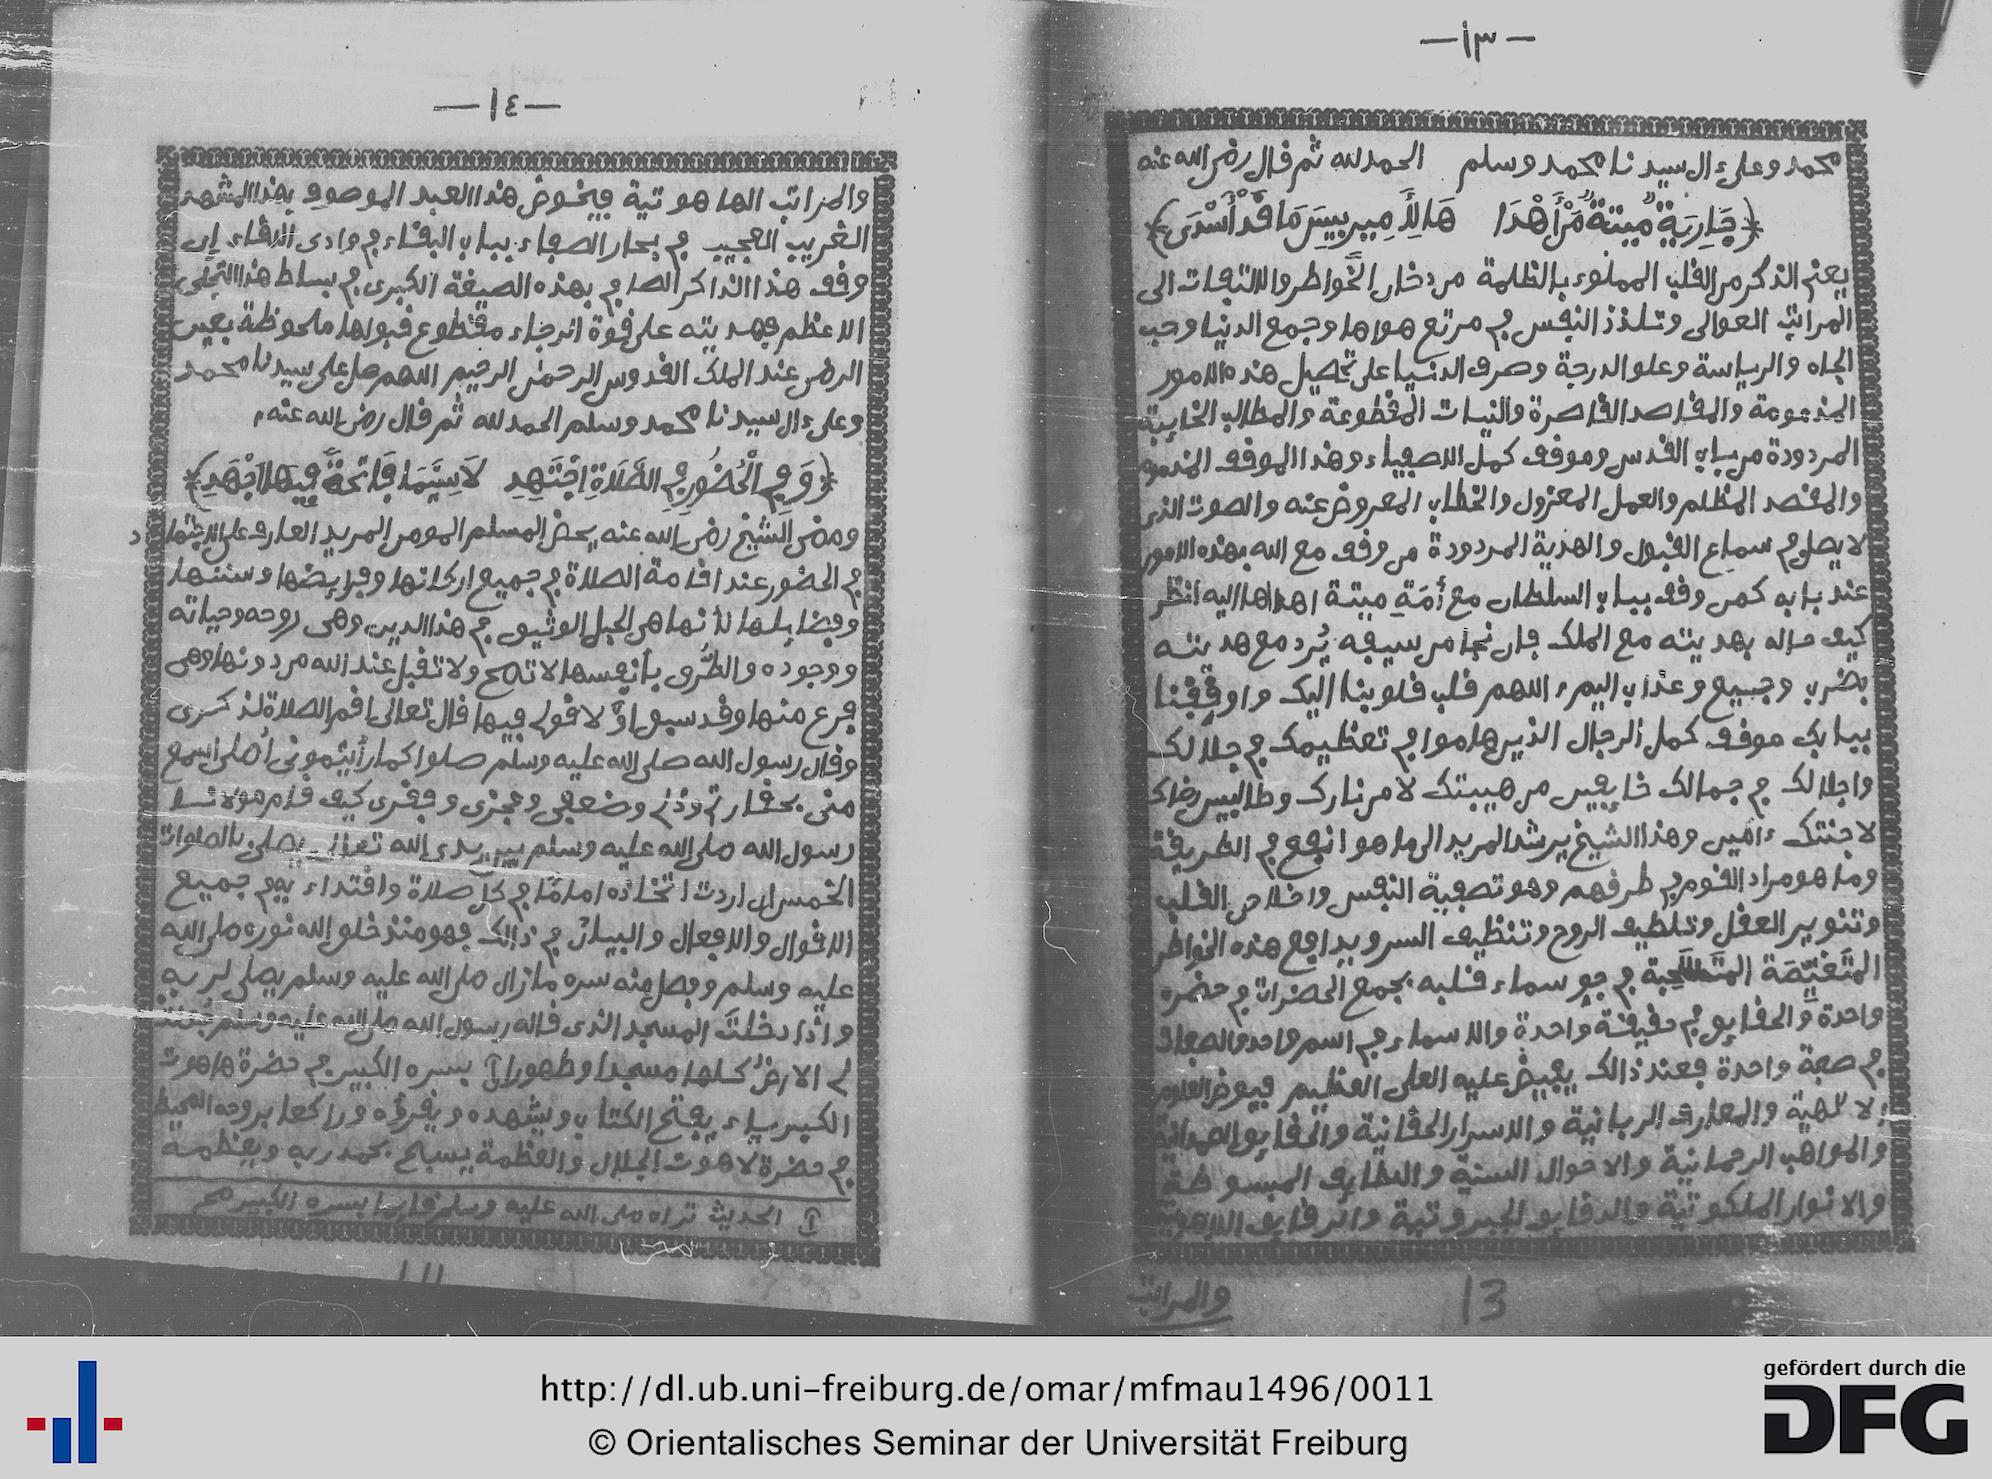 — ١٣ —
محمد وعلى ءال سيدنا محمد وسلم الحمد لله ثم قال رضي الله عنه
﴿جَارِيَةٌ مَيِّتَةٌ مَنْ أَهْدَا هَا لِلْأَمِيرِ بِيسَ مَا قَدْ أَسْدَى﴾
يعني الذكر من القلب المملوء بالظلمة من دخان الخواطر والالتفات الى
المراتب العوالى وتلذذ النفس في مرتع هواها وجمع الدنيا وحب
الجاه والرياسة وعلو الدرجة وصرف الدنيا على تحصيل هذه الامور
المذمومة والمقاصد القاصرة والنيات المقطوعة والمطالب الخايبة
المردودة من باب القدس وموقف كمل الاصفياء وهذا الموقف المذموم
والمقصد المظلم والعمل المعزول والخطاب المعروض عنه والصوت الذى
لا يصل في سماع القبول والهدية المردودة من وقف مع الله بهذه الامور
عند بابه كمن وقف بباب السلطان مع أمَةٍ ميتة اهداها اليه انظر
كيف حاله بهديته مع الملك فان نجا من سيفه يُرد مع هديته
بضرب وجيع وعذاب اليم اللهم قلب قلوبنا اليك واوقفنا
ببابك موقف كمل الرجال الذين هاموا في تعظيمك في جلالك
واجلالك في جمالك خايفين من هيبتك لا من نارك وطالبين رضاك
لا جنتك ءامين وهذا الشيخ يرشد المريد الى ما هو انفع في الطريقة
وما هو مراد القوم في طرقهم وهو تصفية النفس واخلاص القلب
وتنوير العقل وتلطيف الروح وتنظيف السر ويدافع هذه الخواطر
في جو سماء قلبه بجمع الحضرات في حضرة
واحدة والحقايق في حقيقة واحدة والاسماء في اسم واحد والصفات
في صفة واحدة فعند ذالك يفيض عليه العلي العظيم فيوض العلوم
الالهية والمعارف الربانية والاسرار الحقانية والحقايق الصمدانية
والمواهب الرحمانية والاحوال السنية واللطايف المبسوطة
والانوار الملكوتية والدقايق الجبروتية والرقايق اللاهوتية
والمراتب
13
— ١٤ —
والمراتب الهاهوتية فيخوض هذا العبد الموصوف بهذا المشهد
الغريب العجيب في بحار الصفاء بباب البقاء في وادى اللقاء إن
وقف هذا الذاكر الصا في بهذه الصيغة الكبرى في بساط هذا التجلي
الاعظم فهديته على قوة الرجاء مقطوع قبولها ملحوظة بعين
الرضى عند الملك القدوس الرحمن الرحيم اللهم صل على سيدنا محمد
وعلى ءال سيدنا محمد وسلم الحمد لله ثم قال رضي الله عنه
﴿وَفِي الْحُضُورِ فِي الصَّلَاةِ اجْتَهِدِ لَا سِيَّمَا فَاتِحَةً فِيهَا اجْهَدِ﴾
ومضى الشيخ رضي الله عنه يحض المسلم المومن المريد العارف على الاجتهاد
في الحضور عند اقامة الصلاة في جميع اركانها وفرايضها وسننها
وفضايلها لأنها هي الحبل الوثيق في هذا الدين وهى روحه وحياته
ووجوده والطُّرق بأنفسها لا تصح ولا تقبل عند الله من دونها وهى
فرع منها وقد سبق اوَّلا قولى فيها قال تعالى اقم الصلاة لذكرى
وقال رسول الله صلى الله عليه وسلم صلوا كما رأيتموني أصلى اسمع
منى بحقارتي وذلي وضعفي وعجزى وفقرى كيف قام مولانا
رسول الله صلى الله عليه وسلم بين يدى الله تعالى يصلي بالصلوات
الخمس ان اردت اتخاذه امامًا في كل صلاة واقتداء به في جميع
الاقوال والافعال والبيان في ذالك فهو منذ خلق الله نوره صلى الله
عليه وسلم وفصل منه سره مازال صلى الله عليه وسلم يصلي لربه
واذا دخلتَ المسجد الذى قاله رسول الله صلى الله عليه وسلم جعلت
لى الارض كلها مسجدا وطهورا بسره الكبير في حضرة هاهوت
الكبرياء يفتح الكتاب ويشهده ويقرؤه وراكعا بروحه المحيط
في حضرة لاهوت الجلال والعظمة يسبح بحمد ربه ويعظمه
الحديث تراه صلى الله عليه وسلم قايما بسره الكبير صح
http://dl.ub.uni-freiburg.de/omar/mfmau1496/0011
© Orientalisches Seminar der Universität Freiburg
gefördert durch die
DFG